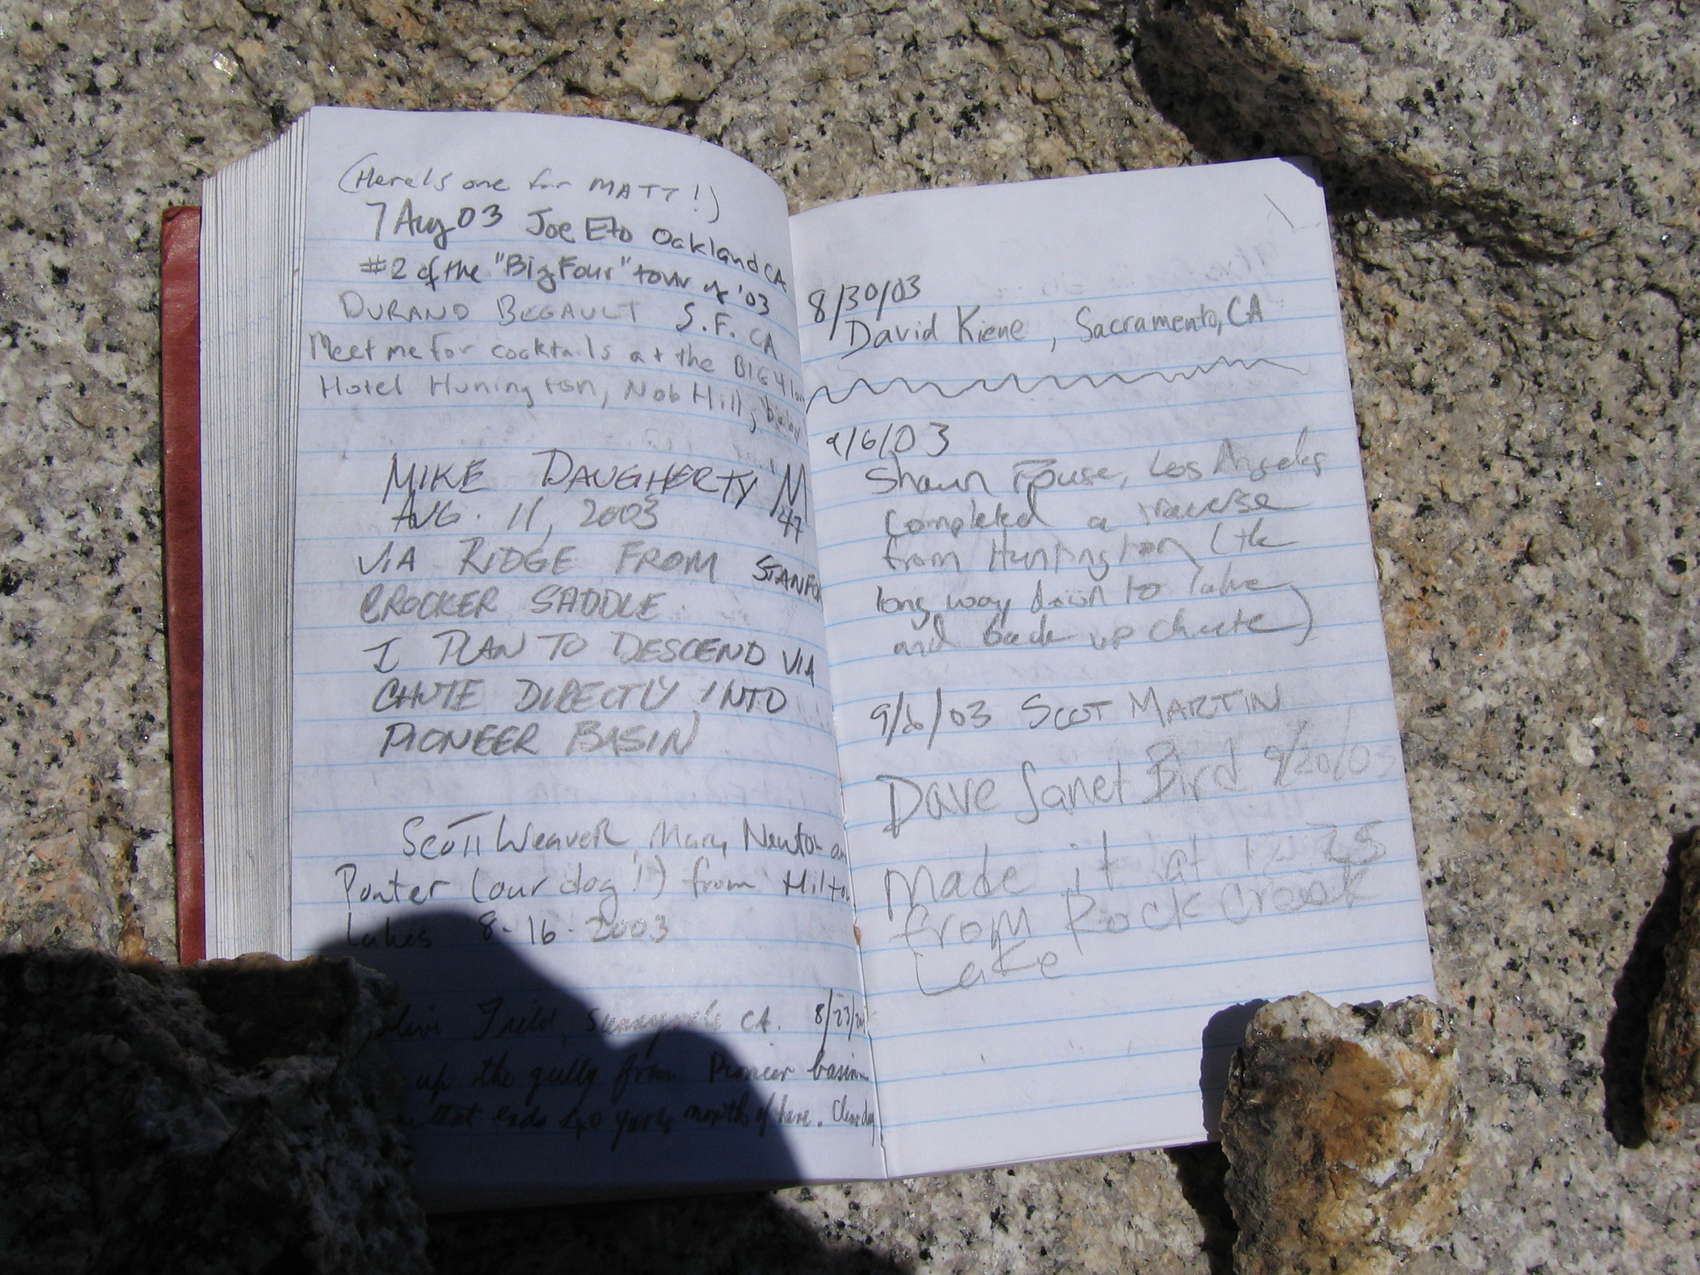 (Here's one for MATT!)
7 Aug 03 Joe Eto Oakland CA
#2 of the "Big Four" tour of '03
DURAND BEGAULT S.F. CA
Meet me for cocktails at the BIG 4
Hotel Hunington, Nob Hill,
MIKE DAUGHERTY M
AUG. 11, 2003 47
VIA RIDGE FROM STANFO
CROCKER SADDLE
I PLAN TO DESCEND VIA
CHUTE DIRECTLY INTO
PIONEER BASIN
Scott Weaver, Mary Newton an
Ponter (our dog!) from Hilton
Lakes 8-16-2003
Sunnyvale CA. 8/23/
up the gully from Pioneer basin
that ends 20 yards north of here.
8/30/03
David Kiene, Sacramento, CA
9/6/03
Shawn Rouse, Los Angeles
Completed a traverse
from Huntington (the
long way down to lake
and back up chute)
9/6/03 SCOT MARTIN
Dave Janet Bird 9/20/03
Made it at
from Rock Creek
Lake